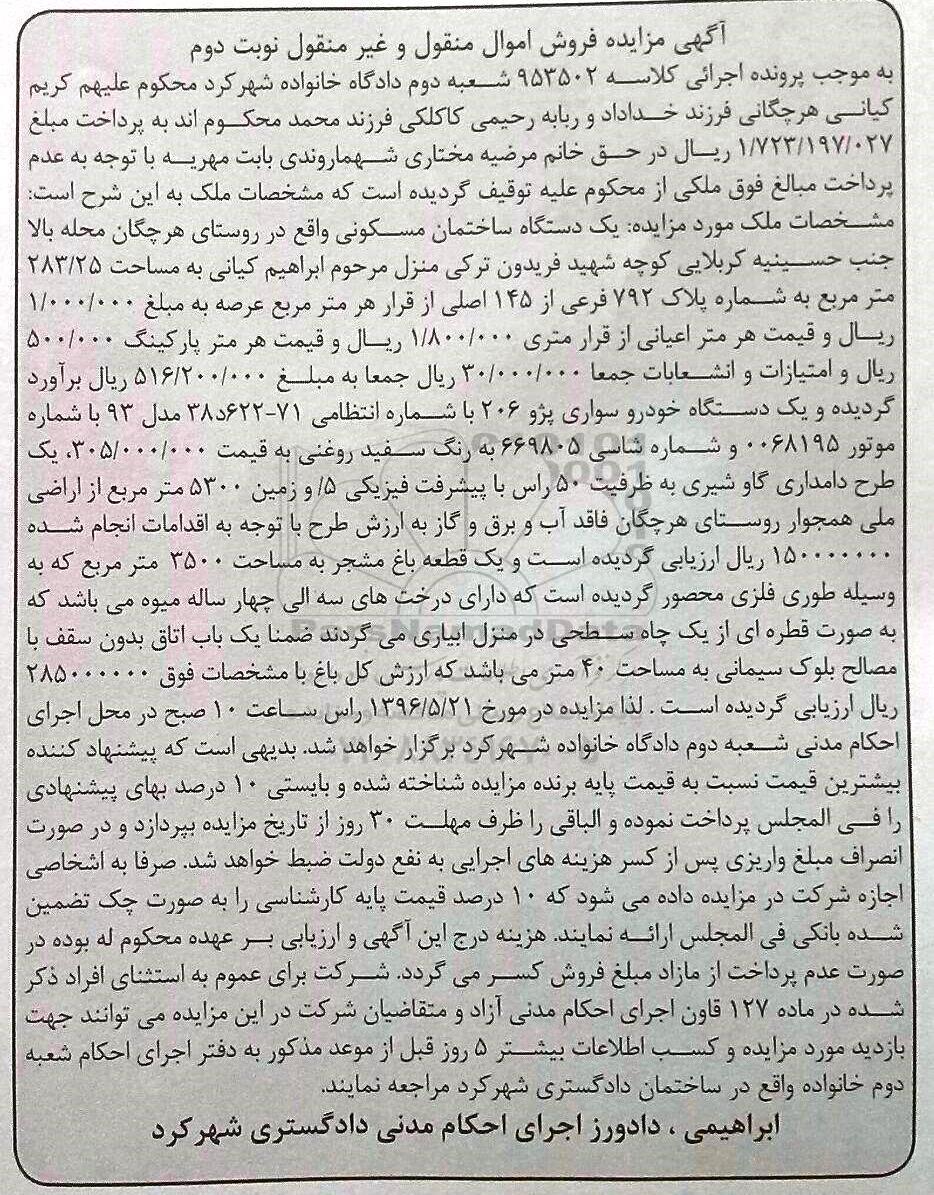 آگهی مزایده فروش اموال منقول و غیر منقول نوبت دوم
به موجب پرونده اجرائی کلاسه ۹۵۳۵۰۲ شعبه دوم دادگاه خانواده شهرکرد محکوم علیهم کریم
کیانی هرچگانی فرزند خداداد و ربابه رحیمی کاکلکی فرزند محمد محکوم اند به پرداخت مبلغ
۱/۷۲۳/۱۹۷/۰۲۷ ریال در حق خانم مرضیه مختاری شهماروندی بابت مهریه با توجه به عدم
پرداخت مبالغ فوق ملکی از محکوم علیه توقیف گردیده است که مشخصات ملک به این شرح است:
مشخصات ملک مورد مزایده: یک دستگاه ساختمان مسکونی واقع در روستای هرچگان محله بالا
جنب حسینیه کربلایی کوچه شهید فریدون ترکی منزل مرحوم ابراهیم کیانی به مساحت ۲۸۳/۲۵
متر مربع به شماره پلاک ۷۹۲ فرعی از ۱۴۵ اصلی از قرار هر متر مربع عرصه به مبلغ ۱/۰۰۰/۰۰۰
ریال و قیمت هر متر اعیانی از قرار متری ۱/۸۰۰/۰۰۰ ریال و قیمت هر متر پارکینگ ۵۰۰/۰۰۰
ریال و امتیازات و انشعابات جمعا ۳۰/۰۰۰/۰۰۰ ریال جمعا به مبلغ ۵۱۶/۲۰۰/۰۰۰ ریال برآورد
گردیده و یک دستگاه خودرو سواری پژو ۲۰۶ با شماره انتظامی ۷۱-۶۲۲د۳۸ مدل ۹۳ با شماره
موتور ۰۰۶۸۱۹۵ و شماره شاسی ۶۶۹۸۰۵ به رنگ سفید روغنی به قیمت ۳۰۵/۰۰۰/۰۰۰، یک
طرح دامداری گاو شیری به ظرفیت ۵۰ راس با پیشرفت فیزیکی ۵/ و زمین ۵۳۰۰ متر مربع از اراضی
ملی همجوار روستای هرچگان فاقد آب و برق و گاز به ارزش طرح با توجه به اقدامات انجام شده
۱۵۰۰۰۰۰۰۰ ریال ارزیابی گردیده است و یک قطعه باغ مشجر به مساحت ۳۵۰۰ متر مربع که به
وسیله طوری فلزی محصور گردیده است که دارای درخت های سه الی چهار ساله میوه می باشد که
به صورت قطره ای از یک چاه سطحی در منزل ابیاری می گردند ضمنا یک باب اتاق بدون سقف با
مصالح بلوک سیمانی به مساحت ۴۰ متر می باشد که ارزش کل باغ با مشخصات فوق ۲۸۵۰۰۰۰۰۰
ریال ارزیابی گردیده است . لذا مزایده در مورخ ۱۳۹۶/۵/۲۱ راس ساعت ۱۰ صبح در محل اجرای
احکام مدنی شعبه دوم دادگاه خانواده شهرکرد برگزار خواهد شد. بدیهی است که پیشنهاد کننده
بیشترین قیمت نسبت به قیمت پایه برنده مزایده شناخته شده و بایستی ۱۰ درصد بهای پیشنهادی
را فی المجلس پرداخت نموده و الباقی را ظرف مهلت ۳۰ روز از تاریخ مزایده بپردازد و در صورت
انصراف مبلغ واریزی پس از کسر هزینه های اجرایی به نفع دولت ضبط خواهد شد. صرفا به اشخاصی
اجازه شرکت در مزایده داده می شود که ۱۰ درصد قیمت پایه کارشناسی را به صورت چک تضمین
شده بانکی فی المجلس ارائه نمایند. هزینه درج این آگهی و ارزیابی بر عهده محکوم له بوده در
صورت عدم پرداخت از مازاد مبلغ فروش کسر می گردد. شرکت برای عموم به استثنای افراد ذکر
شده در ماده ۱۲۷ قاون اجرای احکام مدنی آزاد و متقاضیان شرکت در این مزایده می توانند جهت
بازدید مورد مزایده و کسب اطلاعات بیشتر ۵ روز قبل از موعد مذکور به دفتر اجرای احکام شعبه
دوم خانواده واقع در ساختمان دادگستری شهرکرد مراجعه نمایند.
ابراهیمی ، دادورز اجرای احکام مدنی دادگستری شهرکرد
ParsNamadData